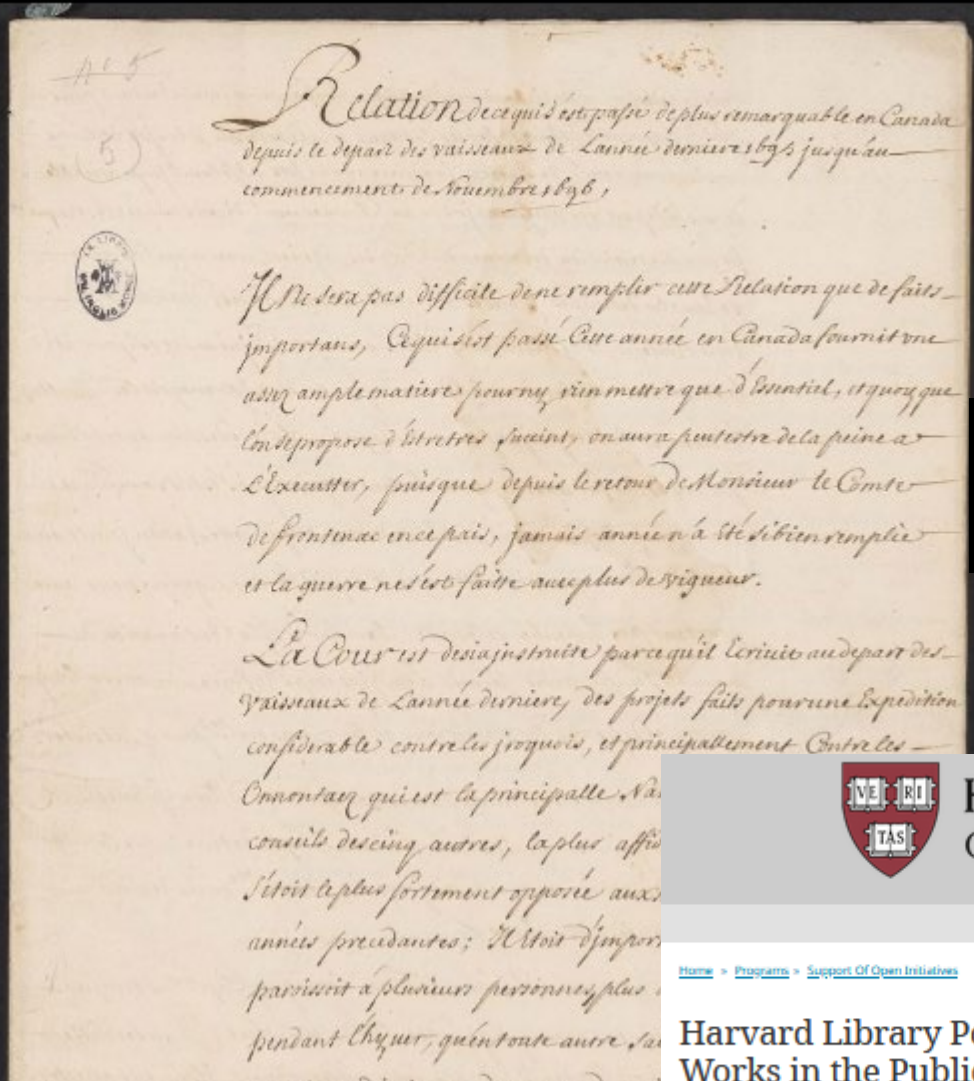 n.o 5
5
Relation de ce qui s'est passé de plus remarquable en Canada
depuis le depart des vaisseaux de L'année derniere 1695 jusqu'au
commencement de Novembre 1696,
Il Ne sera pas difficile de ne remplir cette Relation que de faits
jmportans, Ce qui s'est passé Cette année en Canada fournit vne
assez ample matiere pour ny rien mettre que d'Essential, et quoy que
l'on se propose d'Estre tres succint, on aura peutestre de la peine a
L'Executter, puisque depuis le retour de Monsieur le Comte
de frontenac en ce païs, jamais année n'a Eté si bien remplie
et la guerre ne s'est faitte avec plus de vigueur.
La Cour est desia jnstruite par ce qu'il Ecrivit au depart des
vaisseaux de L'année derniere, des projets faits pour une Expedition
considerable contre les jroquois, et principallement Contre les
Onnontaez qui est la principalle Na
conseils des cinq autres, la plus affi
s'étoit le plus fortement opposée aux
années precedantes; Il Etoit d'jmpor
paroissoit à plusieurs personnes, plus
pendant l'hyver, qu'en toute autre sa
VE RI
TAS
Home > Programs > Support Of Open Initiatives
Harvard Library Po
Works in the Public